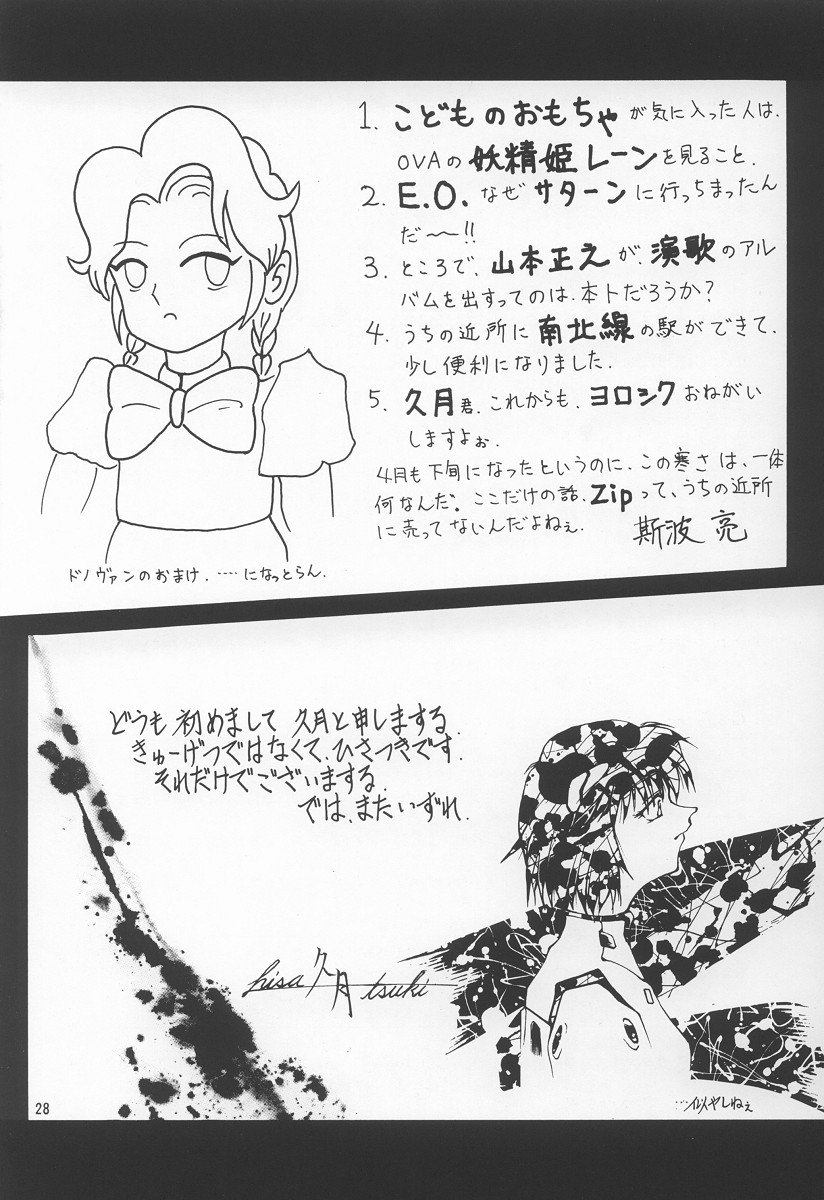 1. こどものおもちゃが気に入った人は、
OVAの妖精姫レーンを見ること.
2. E.O. なぜサターンに行っちまったん
だ〜!!
3. ところで、山本正之が、演歌のアル
バムを出すってのは.本トだろうか?
4. うちの近所に南北線の駅ができて、
少し便利になりました.
5. 久月君.これからも、ヨロシクおねがい
しますよぉ.
4月も下旬になったというのに、この寒さは、一体
何なんだ。ここだけの話、Zipって、うちの近所
に売ってないんだよねぇ.
斯波 亮
ドノヴァンのおまけ.……になっとらん.
どうも初めまして 久月と申しまする.
きゅーげつではなくて、ひさつきです.
それだけでございまする.
では、またいずれ.
hisa久月tsuki
…似やしねぇ
28